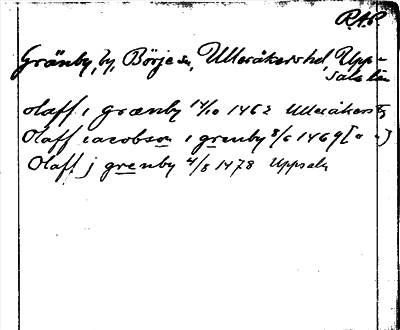 R.A.P.
Gränby, by, Börje sn, Ulleråkers hd, Upp-
sala län
olaff i grænby 14/10 1462 Ulleråkers tg
Olaff iacobson i grenby 8/6 1469 [" "]
Olaff j grenby 4/5 1478 Uppsala